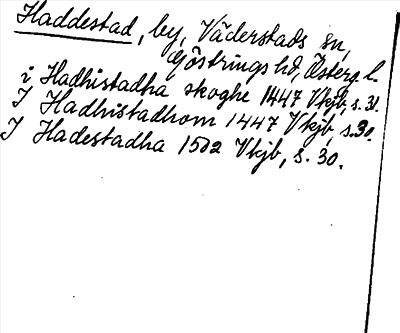 Haddestad, by, Väderstads sn,
Göstrings hd, Österg. l.
i Hadhistadha skoghe 1447 Vkjb, s. 31.
J Hadhistadhom 1447 Vkjb, s. 30.
J Hadestadha 1502 Vkjb, s. 30.